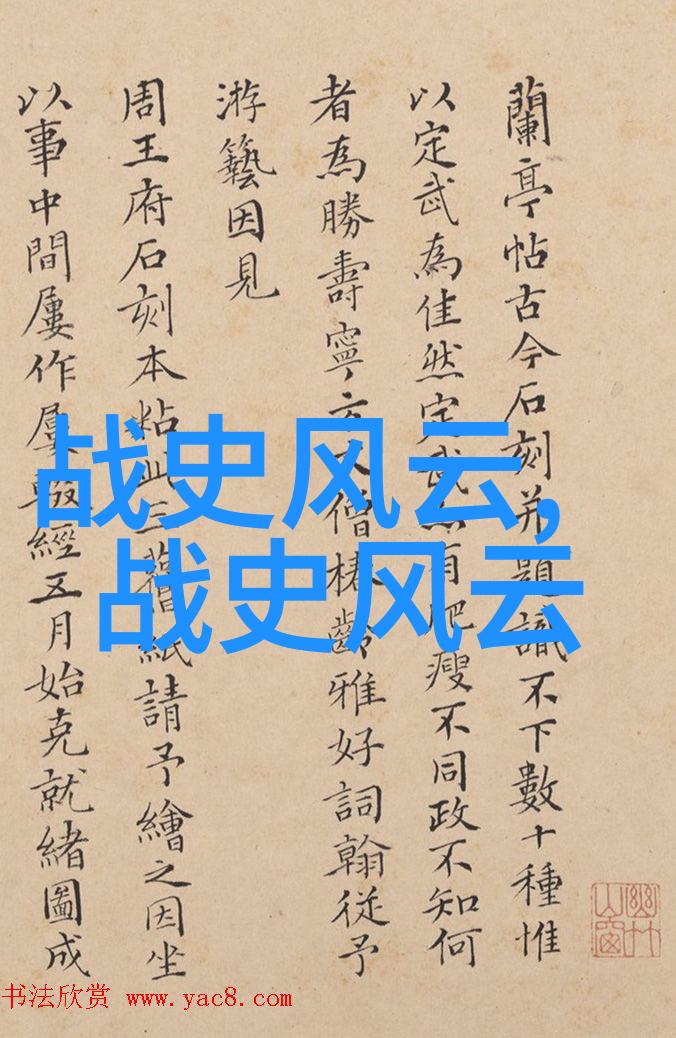 蘭亭帖古今石刻并題識不下數十種惟
以定武為佳然定武亦有肥瘦不同政不知何
者為勝壽寧方丈僧椿齡雅好詞翰從予
游藝因見
周王府石刻本粘此三舊紙請予繪之因坐
以事中間屢作屢輟經五月始克就緒圖成
战史风云,
战史风云
幽竹
山窗
书法欣赏 www.yac8.com